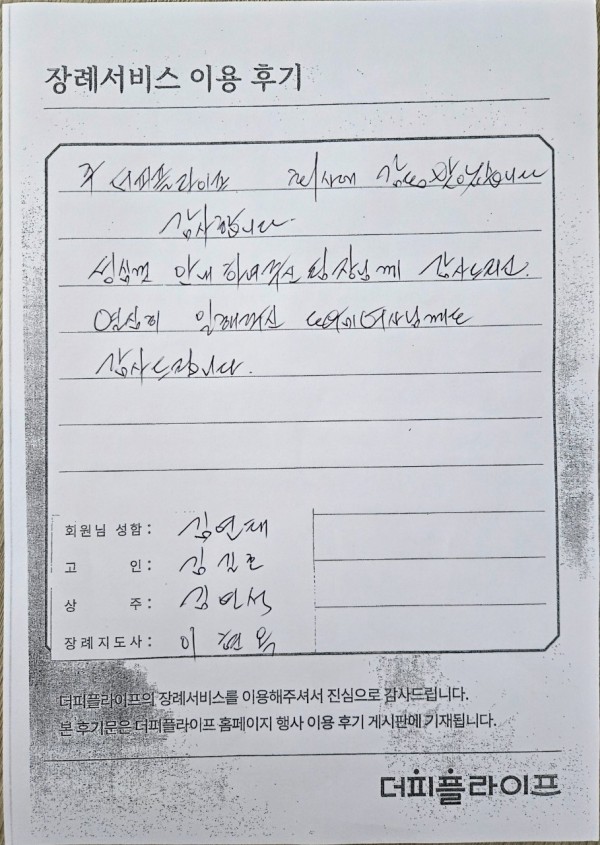 장례서비스 이용 후기
주 더피플라이프 제사에 감동 받았습니다
감사합니다.
성심껏 안내하여주신 팀장님께 감사드리고.
열심히 일해주신 도우미여사님께도
감사드립니다.
회원님 성함: 김연재
고 인: 김길호
상 주: 김민석
장례지도사: 이현욱
더피플라이프의 장례서비스를 이용해주셔서 진심으로 감사드립니다.
본 후기문은 더피플라이프 홈페이지 행사 이용 후기 게시판에 기재됩니다.
더피플라이프